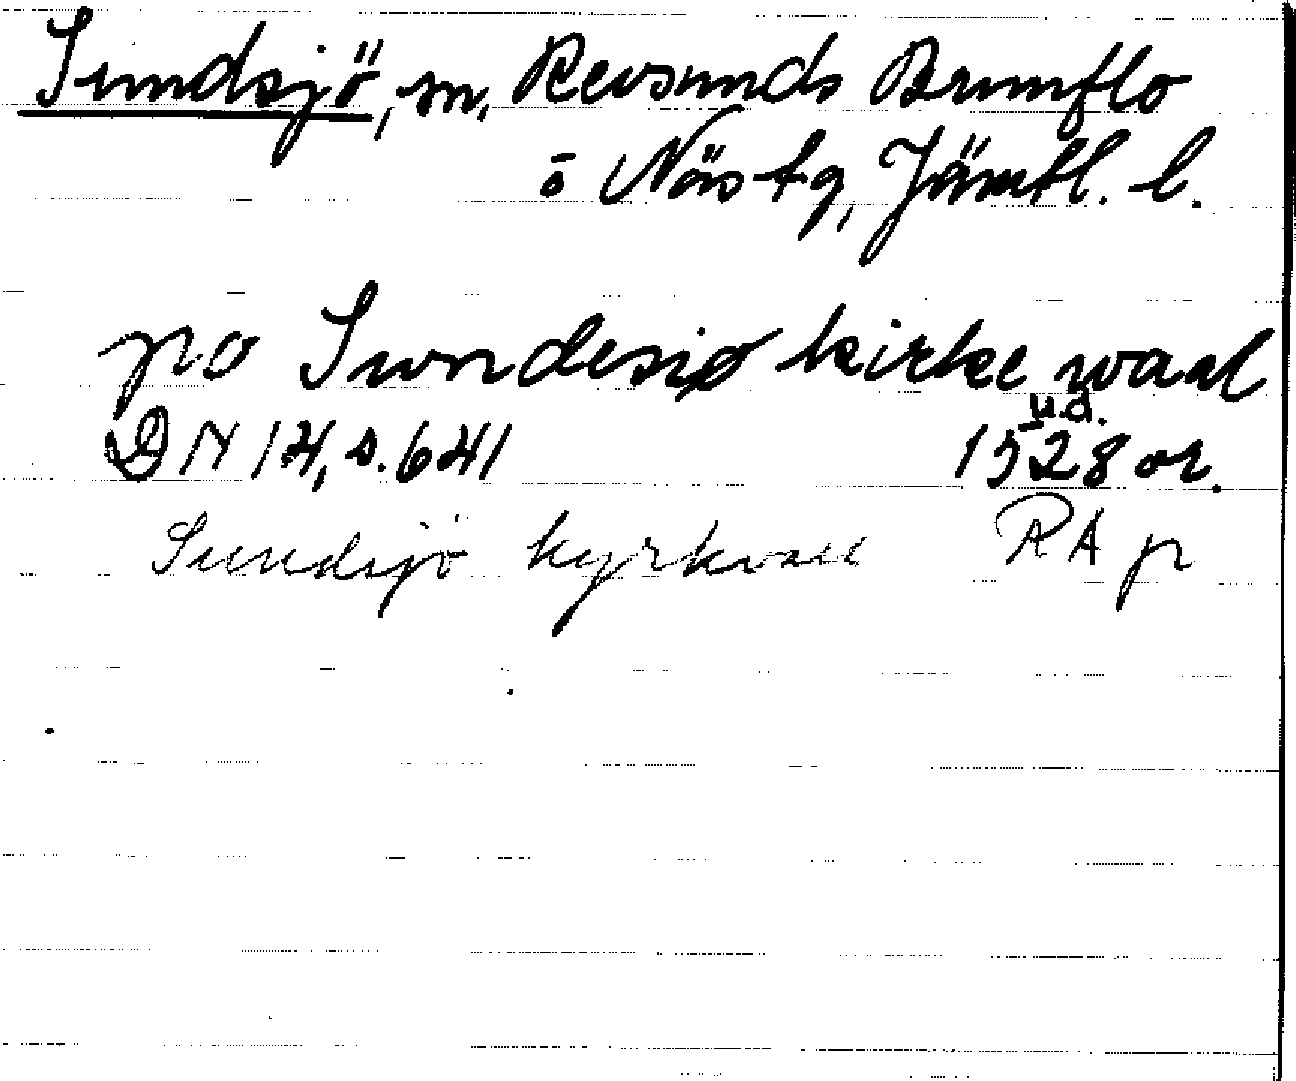 Sundsjö, sn, Revsunds Brunflo
o Näs tg, Jämtl. l.
po Swndesiø kirke waal
u.d.
DN 14, s. 641 1528 or.
Sundsjö kyrkvall RA p